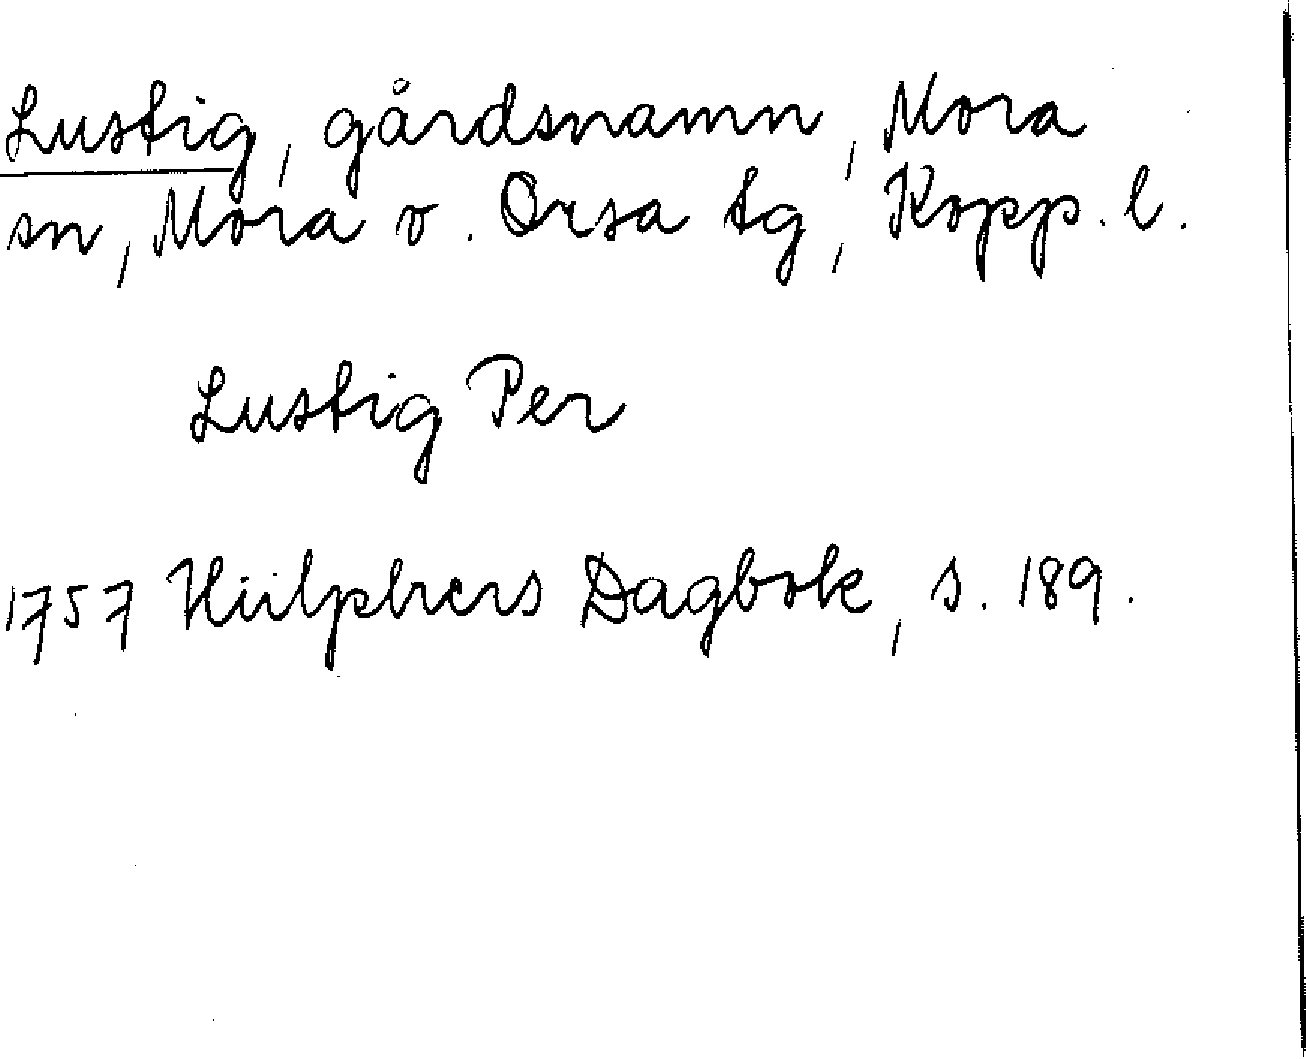 Lustig, gårdsnamn, Mora
sn, Mora o. Orsa tg, Kopp. l.
Lustig Per
1757 Hülphers Dagbok, s. 189.